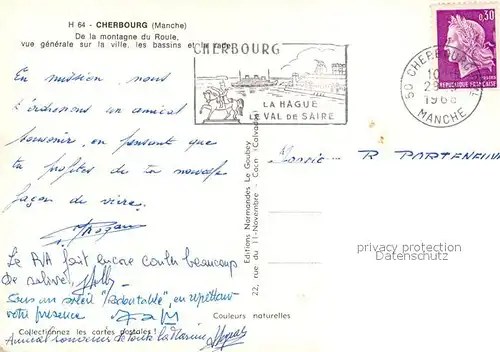 H 64 - CHERBOURG (Manche)
De la montagne du Roule,
vue générale sur la ville, les bassins et la rade
CHERBOURG
LA HAGUE
VAL DE SAIRE
0,30
REPUBLIQUE FRANÇAISE
50 CHERBOURG
10
29
1968
MANCHE
En mission, nous
t'adressons un amical
souvenir, en pensant que
tu profites de ta nouvelle
façon de vivre.
Le RVA fait encore couler beaucoup
de salive!
Sous un soleil "Redoutable", en regrettant
votre présence
Amical souvenir de toute la Marine
Monsieur R PARTENEUVE
privacy protection
DatenSchutz
Editions Normandes Le Goubey
22, rue du 11-Novembre - Caen (Calvados)
Couleurs naturelles
Collectionnez les cartes postales !